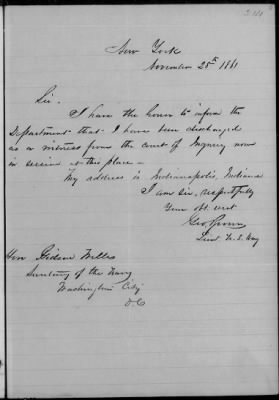 New York
November 25th 1861
Sir.
I have the honor to inform the
Department that I have been discharged
as a witness from the court of Inquiry now
in session at this place –
My address is Indianapolis, Indiana
I am sir, respectfully
Your obt. svt
Geo. Brown
Lieut U. S. Navy
Hon Gideon Welles
Secretary of the Navy
Washington City
D. C